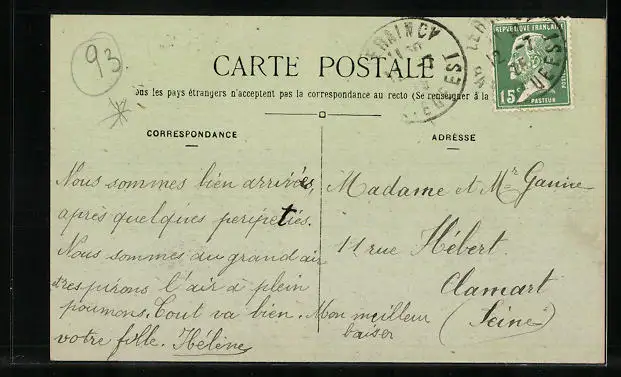 93
CARTE POSTALE
ous les pays étrangers n'acceptent pas la correspondance au recto (Se renseigner à la
CORRESPONDANCE
ADRESSE
REPUBLIQUE FRANÇAISE
15c
PASTEUR
POSTES
Nous sommes bien arrivées,
après quelques peripeties.
Nous sommes au grand air
respirons l'air à plein
poumons. Tout va bien. Mon meilleur
baiser
votre fille. Hélène
Madame et Mr
11 rue Hébert.
Clamart
(Seine)